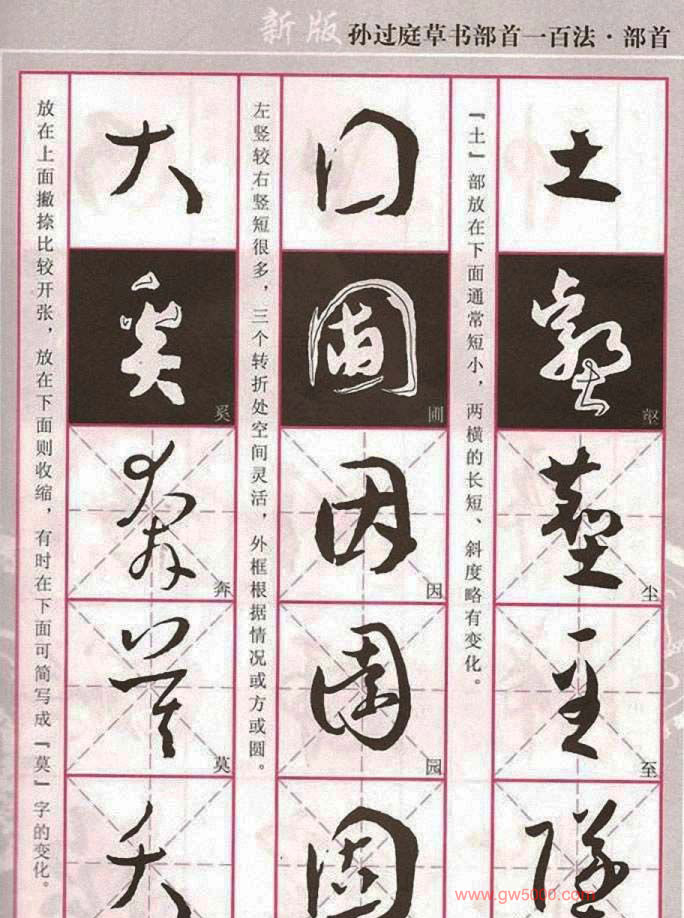 新版 孙过庭草书部首一百法·部首
土
『土』部放在下面通常短小，两横的长短、斜度略有变化。
壑
尘
至
囗
左竖较右竖短很多，三个转折处空间灵活，外框根据情况或方或圆。
圃
因
园
固
大
放在上面撇捺比较开张，放在下面则收缩，有时在下面可简写成『莫』字的变化。
奚
奔
莫
www.gw5000.com